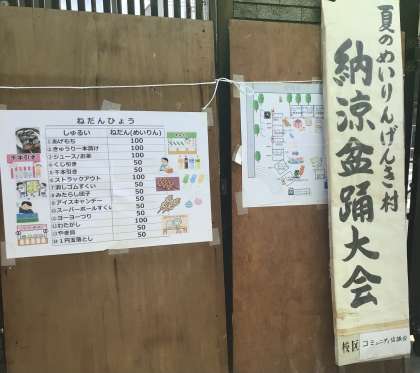 ねだんひょう
しゅるい ねだん(めいりん)
①あげもち 100
②きゅうり一本漬け 100
③ジュース/お茶 100
④くじ引き 50
⑤千本引き 50
⑥ストラックアウト 100
⑦消しゴムすくい 50
⑧みたらし団子 50
⑨アイスキャンデー 50
⑩スーパーボールすくい 50
⑪ヨーヨーつり 50
⑫わたがし 50
⑬やき鳥 100
⑭1円玉落とし 50
千本引き
夏のめいりんげんき村
納涼盆踊大会
校区コミュニティ協議会